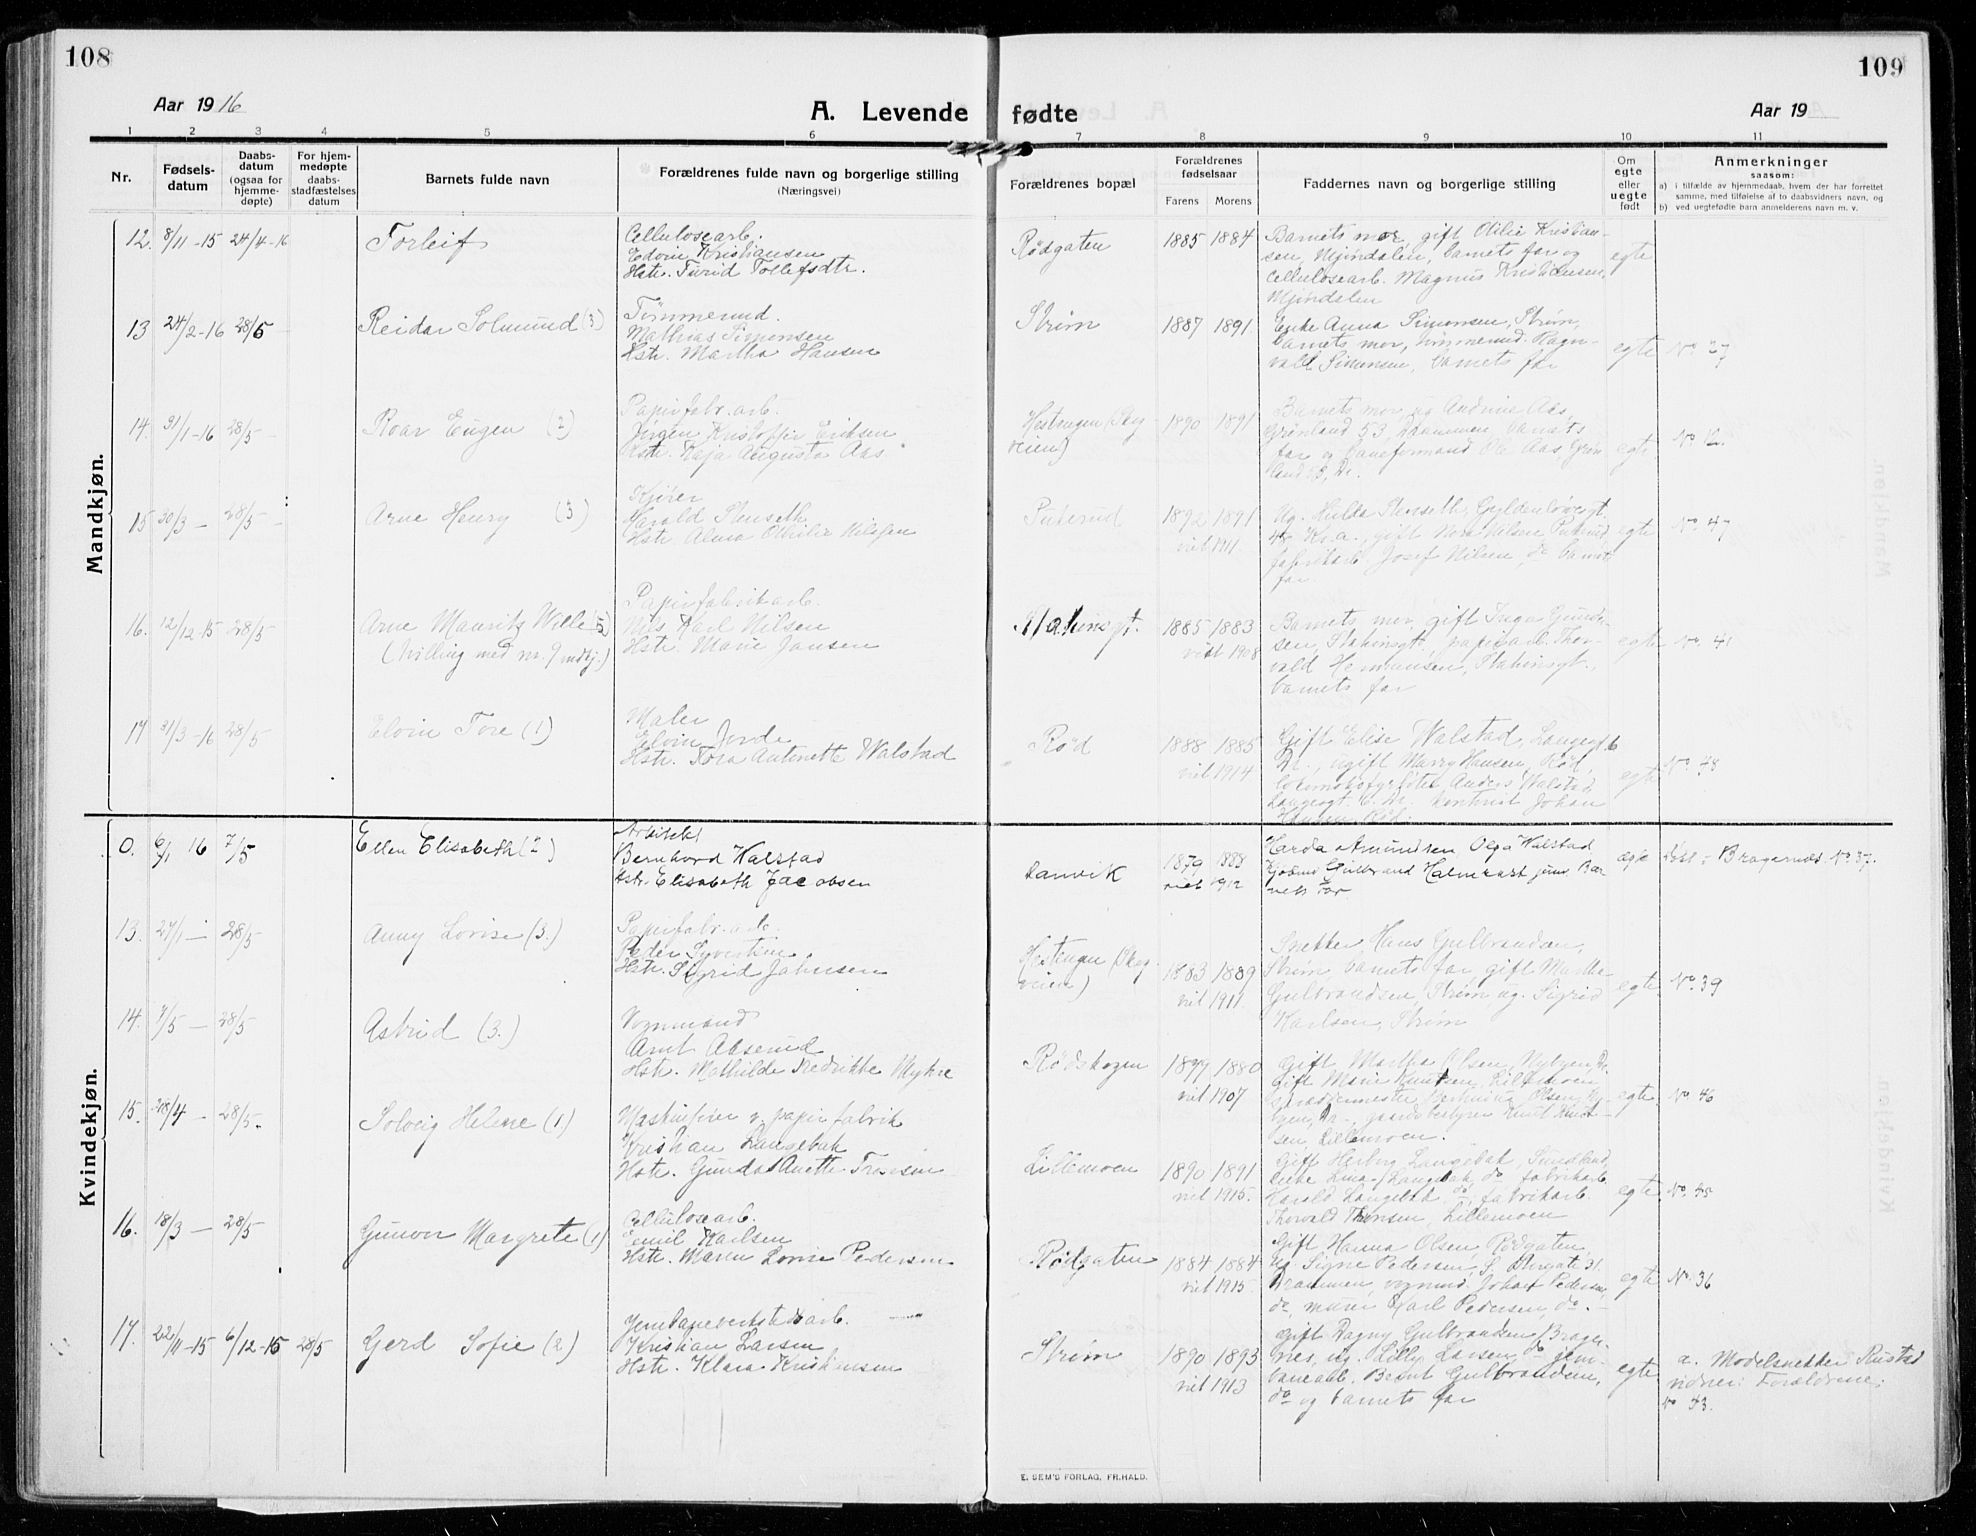 108
109
Aar 1916
A. Levende fødte
Aar 19
1 2 3 4 5 6 7 8 9 10 11
Nr.
Fødsels-
datum
Daabs-
datum
(ogsaa for
hjemme-
døpte)
For hjem-
medøpte
daabs-
stadfæstelses
datum
Barnets fulde navn
Forældrenes fulde navn og borgerlige stilling
(Næringsvei)
Forældrenes bopæl
Forældrenes
fødselsaar
Farens Morens
Faddernes navn og borgerlige stilling
Om
egte
eller
uegte
født
Anmerkninger
saasom:
a) i tilfælde av hjemmedaab, hvem der har forrettet
samme, med tilføielse af to daabsvidners navn, og
b) ved uegtefødte barn anmelderens navn m. v.
Mandkjøn.
12. 8/11-15 24/4-16 Torleif
Cellulosearb.
Edvin Kristiansen
Hstr. Turid Tollefsdtr.
Rødgaten 1885 1884
Barnets mor, gift Otilie Kristian-
sen, Mjøndalen, barnets far og
Cellulosearb. Magnus Kristiansen,
Mjøndalen
egte
13 24/2-16 28/5 Reidar Solmund (3)
Tømmermd.
Mathias Simonsen
Hstr. Martha Hansen
Strøm 1887 1891
Enke Anna Simonsen, Strøm,
barnets mor, tømmermd. Ragn-
vald Simonsen, barnets far
egte No. 27
14. 31/1-16 28/5 Roar Eugen (2)
Papirfabr.arb.
Jørgen Kristoffer Eriksen
Hstr. Kaja Augusta Aas
Hestengen (Skog-
veien) 1890 1891
Barnets mor, ug Andrine Aas,
Grønland 53, Drammen, barnets
far og baneformand Ole Aas, Grøn-
land 53, Dr.
egte No. 12.
15 30/3 — 28/5 — Arne Henry (3)
Kjører
Harald Stenseth
Hstr. Alma Othilie Nilsen
Puterud 1892 1891
viet 1911
Ug. Hilda Stenseth, Gyldenløvegt.
48 Kr.a., gift Nora Nilsen Puterud
fabrikarb. Josef Nilsen, do barnets
far.
egte No. 47
16. 12/12-15 28/5 Arne Mauritz Willie (5)
(Tvilling med nr. 9 mdkj.)
Papirfabrikarb.
Nils Karl Nilsen
Hstr. Marie Jansen
Stakinsgt. 1885 1883
viet 1908
Barnets mor, gift Inga Gunder-
sen, Stakinsgt., papirarb. Thor-
vald Hermansen, Stakinsgt.,
barnets far
egte No. 41
17 31/3-16 28/5 Elvin Tore (1)
Maler
Elvin Jorde
Hstr. Tora Antonette Walstad
Rød 1888 1885
viet 1914
Gift Elise Walstad, Langesgt. 6
Dr., ugift Marry Hansen, Rød,
lokomotivfyrbøter Anders Walstad,
Langesgt. 6, Dr. Johan
Hansen, Rød.
egte No. 48
Kvindekjøn.
0. 6/1 16 7/5 Ellen Elisabeth (2)
Arkitekt
Bernhard Halstad
Hstr. Elisabeth Jacobsen
Danvik 1879 1888
viet 1912
Harda Amundsen Olga Halstad
Kjøbmd Gulbrand Halmrast jun. Bar-
nets Far
ægte Døbt i Bragernes. No. 37.
13. 27/1 — 28/5 Anny Lovise (3.)
Papirfabr.arb.
Peder Syvertsen
Hstr. Sigrid Johnsen
Hestengen (Skog-
veien) 1883 1889
viet 1911
Snekker Hans Gulbrandsen,
Strøm, barnets far, gift Marthe
Gulbrandsen, Strøm ug. Sigrid
Karlsen, Strøm
egte No. 39
14. 7/5 — 28/5 Astrid (3.)
Vognmand
Arnt Aaserud
Hstr. Mathilde Fredrikke Myhre
Rødskogen 1877 1880
viet 1907
Gift Martha Olsen, Nybyen, Dr.
Gift Marie Knutsen, Lillemoen,
Olsen, Ny-
byen, Dr., gaardsbestyrer Knut Knut-
sen, Lillemoen.
egte. No. 46
15. 28/4 — 28/5. Solveig Helene (1.)
Maskinfører v. papirfabrik
Kristian Langebak
Hstr. Gunda Anette Tronsen
Lillemoen 1890 1891
viet 1915.
Gift Herborg Langebak, Sundland,
enke Lina Langebak do. fabrikarb.
Harald Langebak do. fabrikarb
Thorvald Thronsen, Lillemoen
egte No. 45
16. 18/3 — 28/5 Gunvor Margrete (1)
Cellulosearb.
Emil Karlsen
Hstr. Maren Lovise Pedersen
Rødgaten 1884 1884
viet 1915.
Gift Hanna Olsen, Rødgaten,
Ug. Signe Pedersen, 31.
Drammen, vognmd. Johan Pedersen,
do, murer Karl Pedersen, do.
egte No. 36
17. 22/11-15 6/12-15 28/5 Gerd Sofie (2)
Jernbaneverkstedarb.
Kristian Larsen
Hstr. Klara Kristiansen
Strøm 1890 1893
viet 1913
Gift Dagny Gulbrandsen, Brager-
nes, ug. Lilly Larsen do jern-
banearb. Bernt Gulbrandsen,
do og barnets far
egte
a. Modelsnekker Rustad
vidner: Forældrene.
No 43.
E. SEM'S FORLAG, FR.HALD.